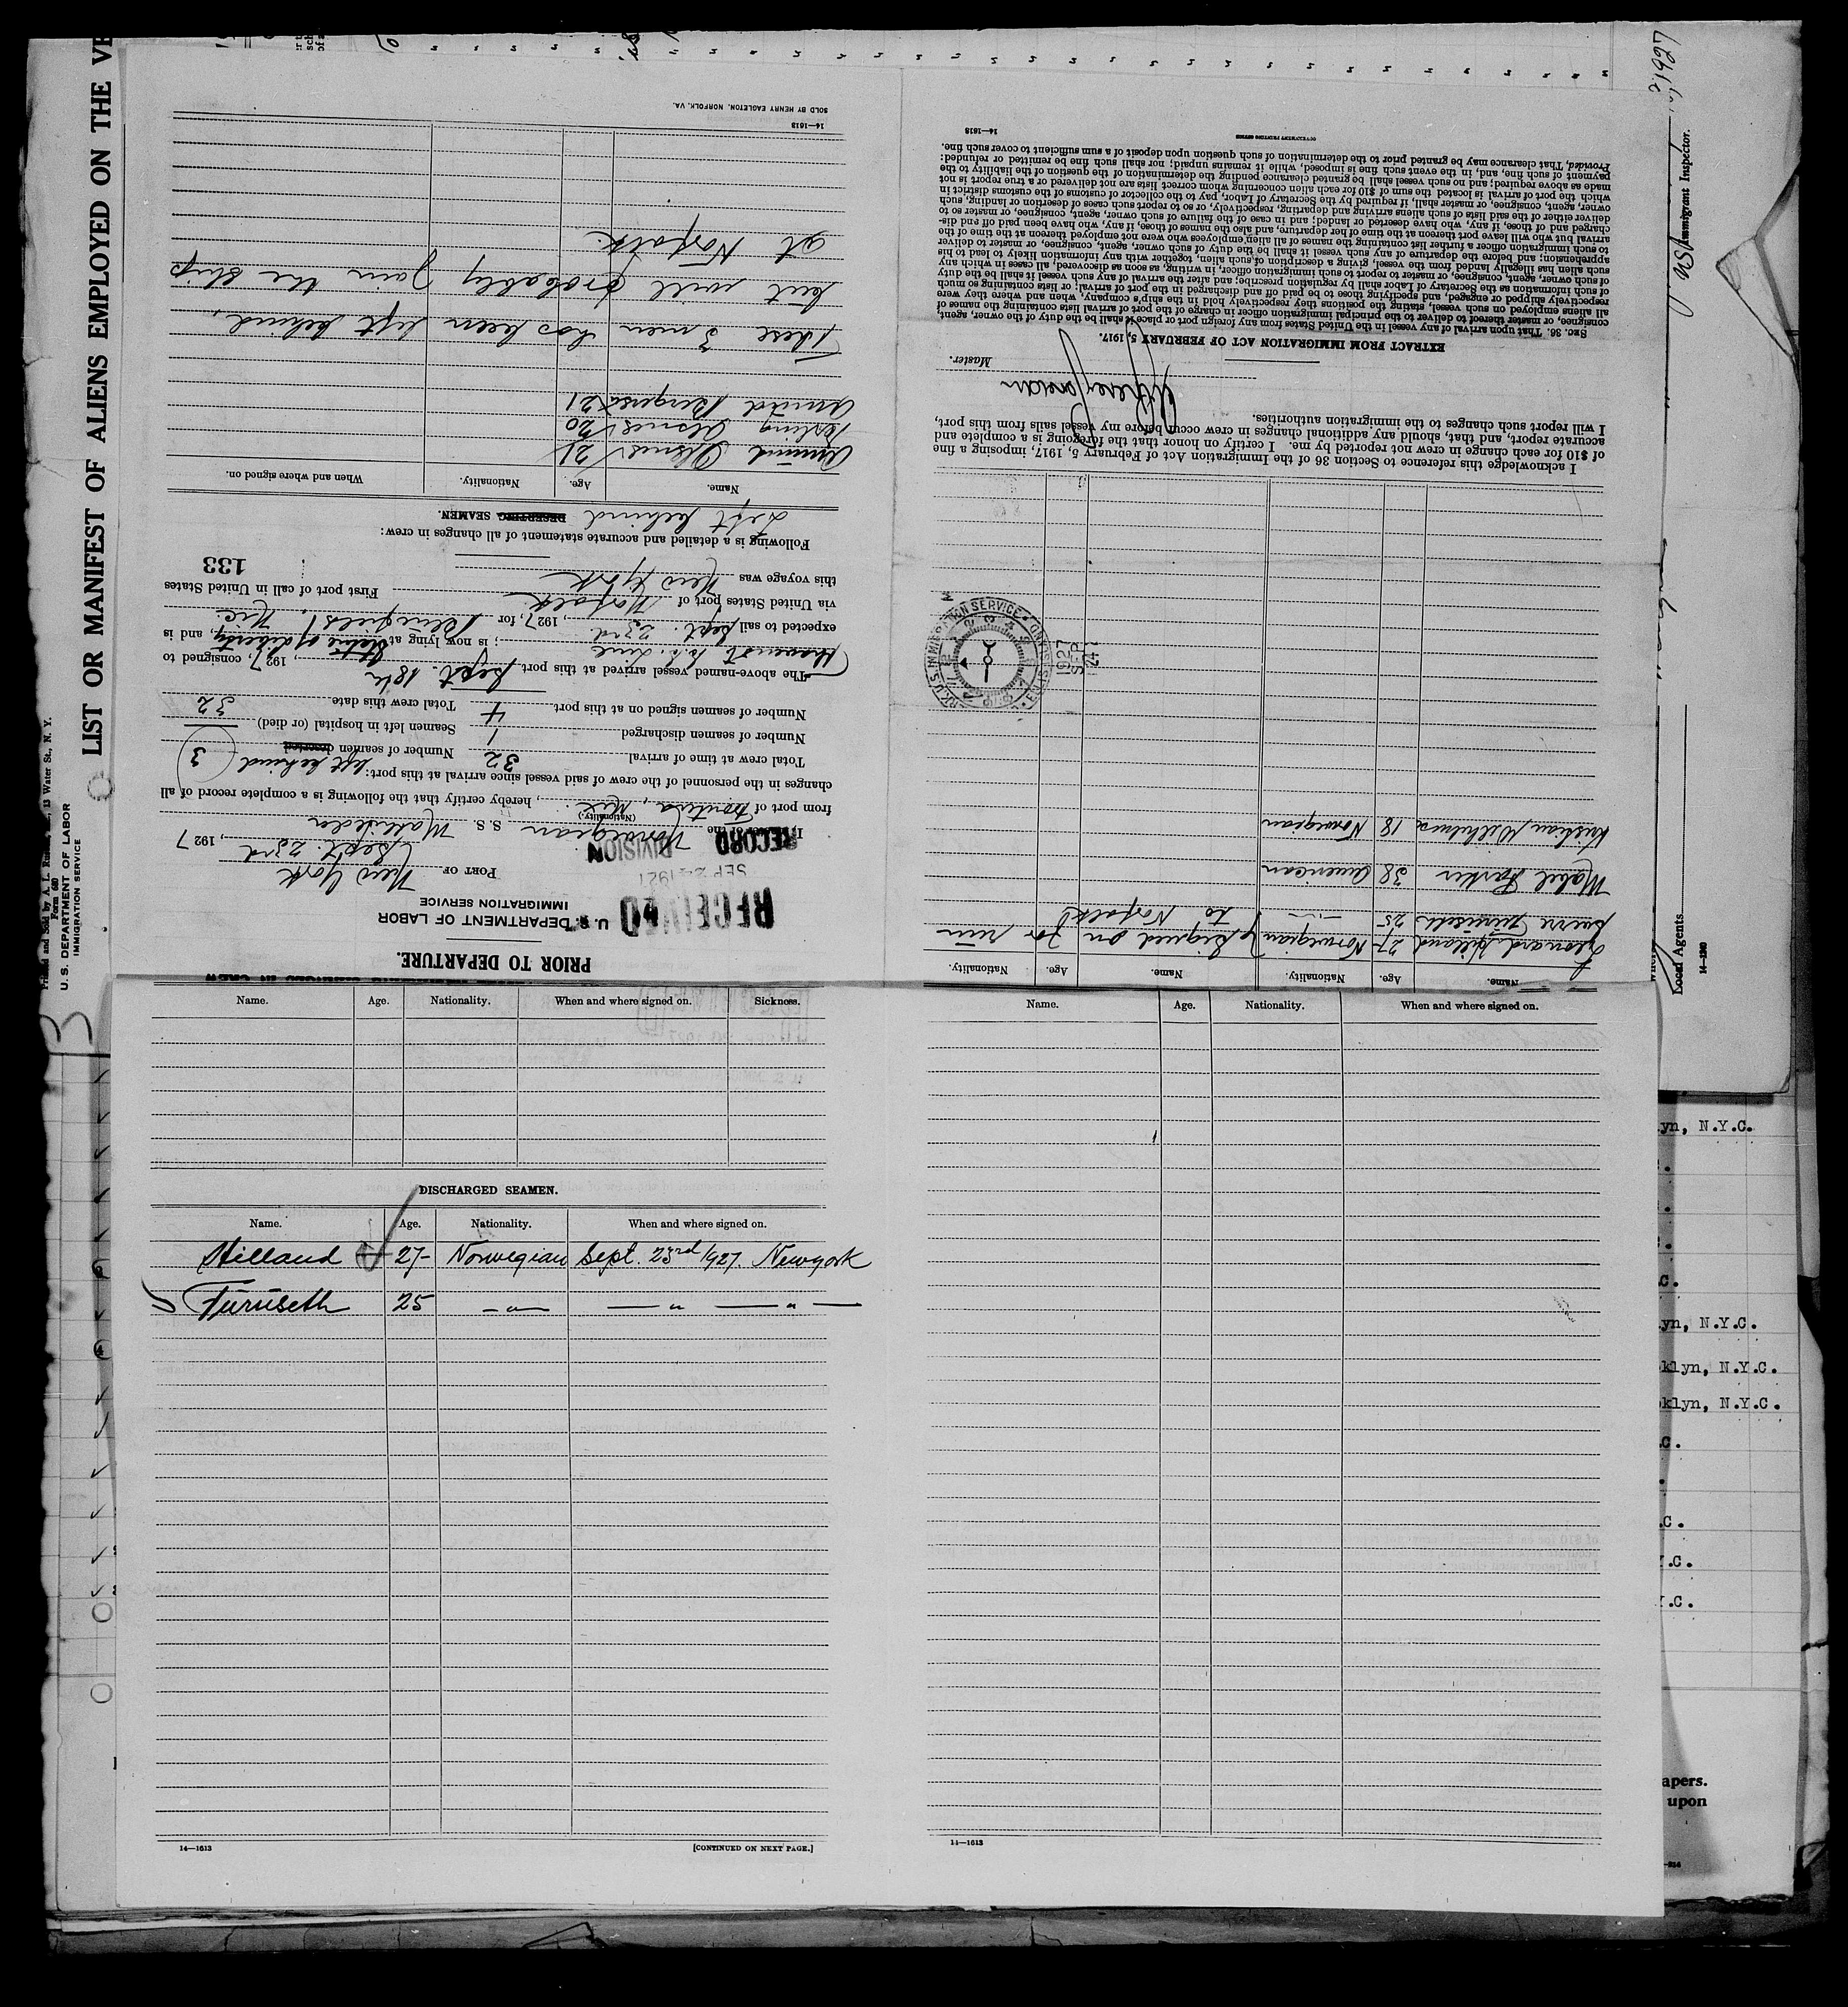 LIST OR MANIFEST OF ALIENS EMPLOYED ON THE VE
U.S. DEPARTMENT OF LABOR
IMMIGRATION SERVICE
Form 680
PRIOR TO DEPARTURE.
U. S. DEPARTMENT OF LABOR
IMMIGRATION SERVICE
RECEIVED
SEP 24 1927
RECORD DIVISION
New York
PORT OF
Sept. 23rd, 1927
Norwegian S. S.
(Nationality)
from port of Frontera, Mex., hereby certify that the following is a complete record of all
changes in the personnel of the crew of said vessel since arrival at this port:
Total crew at time of arrival 32 Number of seamen deserted left behind 3
Number of seamen discharged 1 Seamen left in hospital (or died)
Number of seamen signed on at this port 4 Total crew this date 32
The above-named vessel arrived at this port Sept. 18th, 1927, consigned to
S.S. Line; is now lying at Statue of Liberty, and is
expected to sail Sept. 23rd, 1927, for
via United States port of Norfolk First port of call in United States
this voyage was New York
133
Following is a detailed and accurate statement of all changes in crew:
Left behind DESERTING SEAMEN.
Name. Age. Nationality. When and where signed on.
21
20
21
These 3 men has been left behind,
but will probably join the ship
at Norfolk.
14—1613
SOLD BY HENRY EAGLETON, NORFOLK, VA.
Name. Age. Nationality. Name. Age. Nationality.
Leonard Hilland 27 Norwegian Signed on for run
Furuseth 25 to Norfolk
Mabel Parker 38 American
Kristian Wilhelmsen 18 Norwegian
1927
SEP
24
I acknowledge this reference to Section 36 of the Immigration Act of February 5, 1917, imposing a fine
of $10 for each change in crew not reported by me. I certify on honor that the foregoing is a complete and
accurate report, and that, should any additional changes in crew occur before my vessel sails from this port,
I will report such changes to the immigration authorities.
Master.
EXTRACT FROM IMMIGRATION ACT OF FEBRUARY 5, 1917.
SEC. 36. That upon arrival of any vessel in the United States from any foreign port or place it shall be the duty of the owner, agent,
consignee, or master thereof to deliver to the principal immigration officer in charge of the port of arrival lists containing the names of
all aliens employed on such vessel, stating the positions they respectively hold in the ship's company, when and where they were
respectively shipped or engaged, and specifying those to be paid off and discharged in the port of arrival; or lists containing so much
of such information as the Secretary of Labor shall by regulation prescribe; and after the arrival of any such vessel it shall be the duty
of such owner, agent, consignee, or master to report to such immigration officer, in writing, as soon as discovered, all cases in which any
such alien has illegally landed from the vessel, giving a description of such alien, together with any information likely to lead to his
apprehension; and before the departure of any such vessel it shall be the duty of such owner, agent, consignee, or master to deliver
to such immigration officer a further list containing the names of all alien employees who were not employed thereon at the time of the
arrival but who will leave port thereon at the time of her departure, and also the names of those, if any, who have been paid off and dis-
charged and of those, if any, who have deserted or landed; and in case of the failure of such owner, agent, consignee, or master so to
deliver either of the said lists of such aliens arriving and departing, respectively, or so to report such cases of desertion or landing, such
owner, agent, consignee, or master shall, if required by the Secretary of Labor, pay to the collector of customs of the customs district in
which the port of arrival is located the sum of $10 for each alien concerning whom correct lists are not delivered or a true report is not
made as above required; and no such vessel shall be granted clearance pending the determination of the question of the liability to the
payment of such fine, and, in the event such fine is imposed, while it remains unpaid; nor shall such fine be remitted or refunded:
Provided, That clearance may be granted prior to the determination of such question upon deposit of a sum sufficient to cover such fine.
14—1613
GOVERNMENT PRINTING OFFICE
Name. Age. Nationality. When and where signed on. Sickness.
DISCHARGED SEAMEN.
Name. Age. Nationality. When and where signed on.
Hilland 27 Norwegian Sept. 23rd 1927. Newyork
Furuseth 25 — " — — " — " —
14—1613
[CONTINUED ON NEXT PAGE.]
Name. Age. Nationality. When and where signed on.
14—1613
1927
Immigrant Inspector.
Local Agents
14—1240
yn, N.Y.C.
C.
yn, N.Y.C.
klyn, N.Y.C.
klyn, N.Y.C.
.C.
.C.
Y.C.
Y.C.
apers.
upon